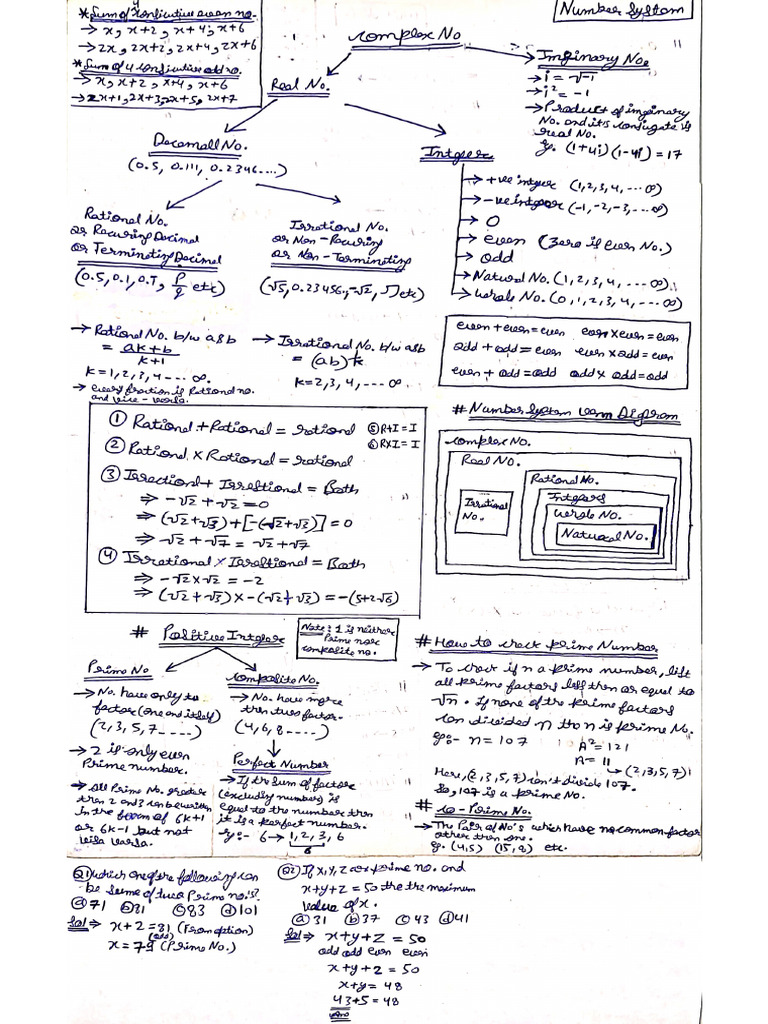 Number System
* Sum of 4 consicutive even no.
→ x, x+2, x+4, x+6
→ 2x, 2x+2, 2x+4, 2x+6
* Sum of 4 consicutive odd no.
→ x, x+2, x+4, x+6
→ 2x+1, 2x+3, 2x+5, 2x+7
Complex No
Real No.
Imginary No.
→ i = √-1
→ i² = -1
→ Product of imginary
No. and its conjugate is
real No.
eg. (1+4i) (1-4i) = 17
Decamall No.
(0.5, 0.111, 0.2346....)
Intger
→ +ve intger (1,2,3,4,....∞)
→ -ve intger (-1,-2,-3,....∞)
→ 0
→ even (Zero is even No.)
→ odd
→ Natural No. (1,2,3,4,....∞)
→ whole No. (0,1,2,3,4,....∞)
Rational No.
or Recuring Decimal
or Terminating Decimal
(0.5, 0.1, 0.1, p/q etc)
Irrational No.
or Non-Recuring
or Non-Terminating
(√5, 0.23456.,-√2, √ etc)
→ Rational No. b/w a&b
= ak+b / k+1
k=1,2,3,4-...∞.
→ every fration is Rational no.
and vice-varsa.
→ Irrational No. b/w a&b
= (ab)^1/k
k=2,3,4,....∞.
even+even=even even×even=even
odd + odd = even even×odd=even
even + odd = odd odd × odd=odd
① Rational+Rational = rational ⑤ R+I=I
② Rational × Rational = rational ⑥ R×I=I
③ Irrational + Irrational = Both
⇒ -√2+√2=0
⇒ (√2+√3)+[-(√2+√3)]=0
⇒ -√2+√7 = √2+√7
④ Irrational × Irrational = Both
⇒ -√2×√2 = -2
⇒ (√2+√3)×-(√2+√3) = -(5+2√6)
# Number System venn Digram
Complex No.
Real No.
Rational No.
Intgers
whole No.
Natural No.
Irrational
No.
# Positive Intger
Note: 1 is neither
Prime nor
composite no.
Prime No
→ No. have only two
factor (one and itself)
(2,3,5,7-....)
→ 2 is only even
Prime number.
→ All Prime No. greater
then 2 and 3 can be written
in the form of 6k+1
or 6k-1 but not
visa varsa.
Composite No.
→ No. have more
then two factor-
(4,6,8....)
Perfect Number
→ If the sum of factor
(excluding number) is
equal to the number then
it is a perfect number.
eg:- 6→ 1,2,3,6
6
# How to check prime Number
→ To check if n a prime number, list
all prime factors less then or equal to
√n. If none of the prime factors
can divided n then n is prime No.
eg:- n=107
A²=121
A= 11
→(2,3,5,7)
Here, (2,3,5,7) can't divide 107.
So, 107 is a prime No.
# Co-Prime No.
→ The Pair of No's which have no common factor
other than one.
eg. (4,5) (15,8) etc.
Q1) which one of the following can
be sum of two Prime no.'s?
ⓐ 71 ⓑ 81 ⓒ 83 ⓓ 101
Sol ⇒ x+2=81 (From option)
(odd)
x = 79 (Prime No.)
Q2) If x,y,z are prime no. and
x+y+z=50 the the maximum
value of x.
ⓐ 31 ⓑ 37 ⓒ 43 ⓓ 41
Sol ⇒ x+y+z = 50
odd odd even even
x+y+2=50
x+y=48
43+5=48
Ans